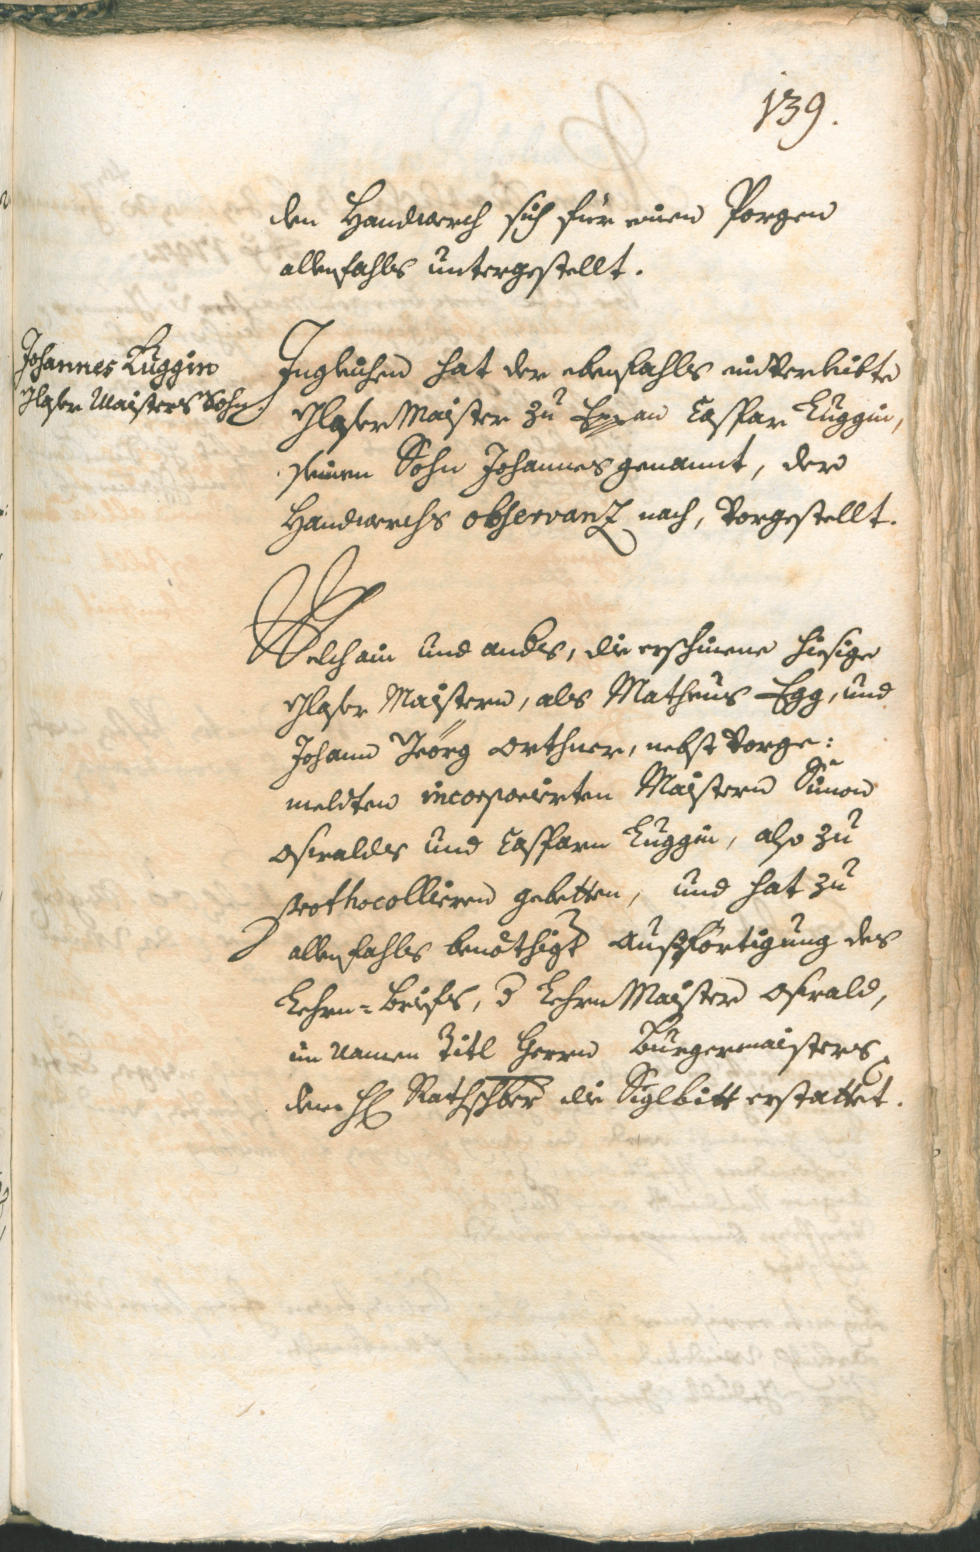 139.
den Handwerch sich für einen Porgen
allenfahls untergestellt.
Johannes Luggin
Glaser Maisters Sohn.
Ingleichen hat der ebenfahls einverleibte
Glaser Maister zu Eppan Casspar Luggin,
seinen Sohn Johannes genannt, der
Handwerchs observanz nach, vorgestellt.
Welch ain und andes, die erschinene hiesige
Glaser Maistern, als Matheus Egg, und
Johann Jeörg Orthner, nebst vorge:
meldten incorporirten Maistern Simon
Osswaldes und Casspern Luggin, also zu
prothocollieren gebetten, und hat zu
allenfahls benöthigt Aussförtigung des
Lehrn-Briefs, d Lehrn Maister Osswald,
im Namen Titl Herrn Burgermaisters
dem H Rathschber die Siglbitt erstattet.